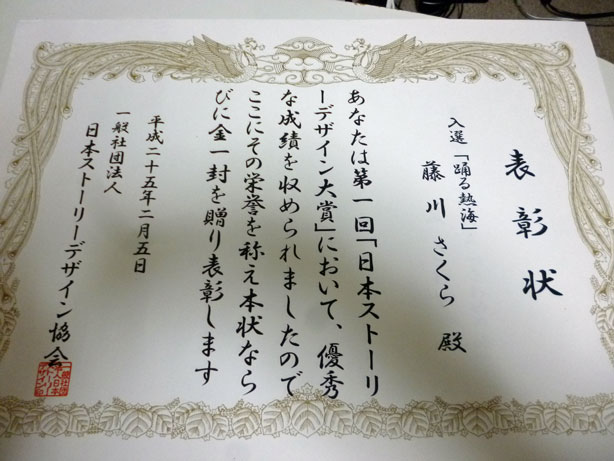 表彰状
入選「踊る熱海」
藤川さくら 殿
あなたは第一回「日本ストーリ
ーデザイン大賞」において、優秀
な成績を収められましたので
ここにその栄誉を称え本状なら
びに金一封を贈り表彰します
平成二十五年二月五日
一般社団法人
日本ストーリーデザイン協会